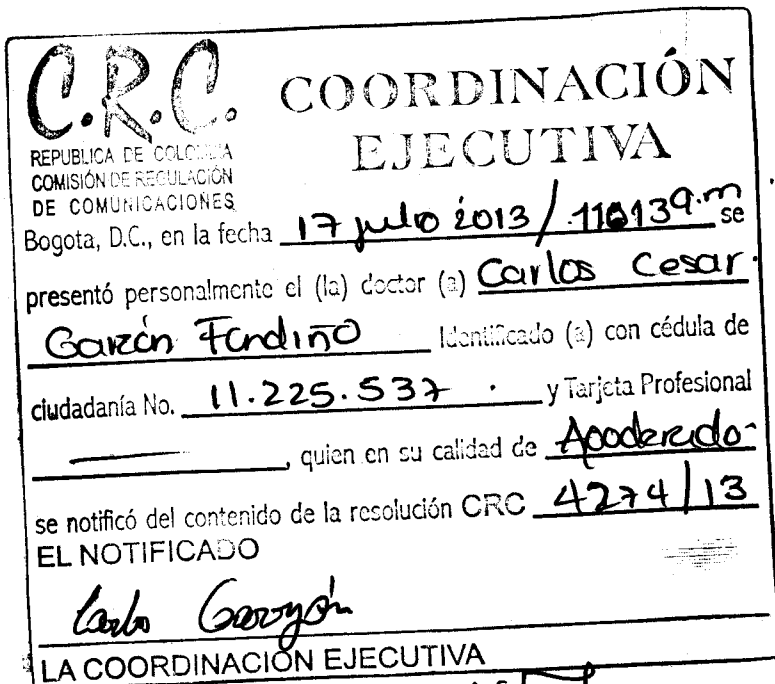 C.R.C.
COORDINACIÓN
EJECUTIVA
REPUBLICA DE COLOMBIA
COMISIÓN DE REGULACIÓN
DE COMUNICACIONES
Bogota, D.C., en la fecha 17 julio 2013 / 11:01 39 a.m se
presentó personalmente el (la) doctor (a) Carlos Cesar
Garzón Fandiño Identificado (a) con cédula de
ciudadanía No. 11.225.537 . y Tarjeta Profesional
, quien en su calidad de Apoderado-
se notificó del contenido de la resolución CRC 4274/13
EL NOTIFICADO
Carlos Garzón
LA COORDINACIÓN EJECUTIVA